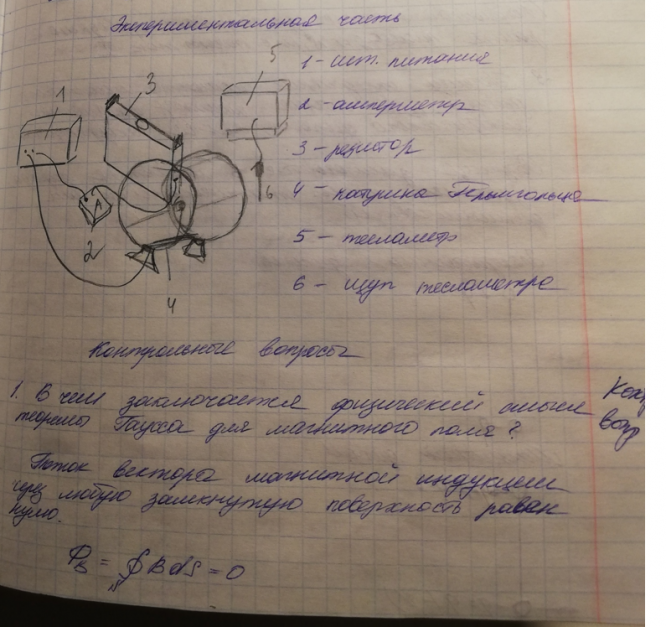 Экспериментальная часть
1 - ист. питания
2 - амперметр
3 - резистор
4 - катушка Гельмгольца
5 - тесламетр
6 - щуп тесламетра
1
3
5
A
2
6
4
Контрольные вопросы
1. В чем заключается физический смысл
теоремы Гаусса для магнитного поля?
Поток вектора магнитной индукции
через любую замкнутую поверхность равен
нулю.
Ф_B = ∮ B dS = 0